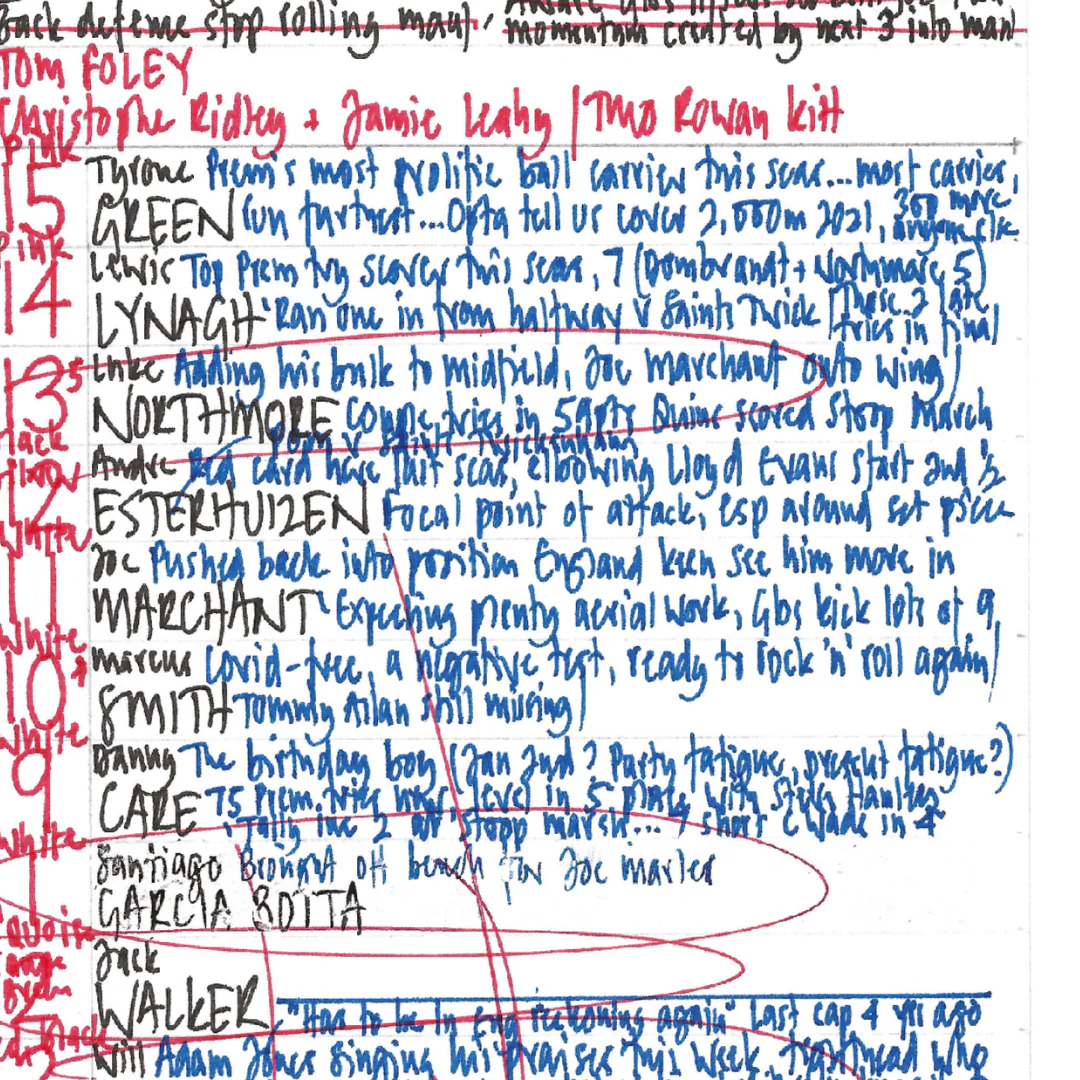 back defence stop rolling maul,
momentum created by next 3 into maul
TOM FOLEY
Christophe Ridley + Jamie Leahy / TMO Rowan Kitt
Pink
15 Tyrone Prem's most prolific ball carrier this seas... most carries,
GREEN run furthest... Opta tell us cover 2,000m 2021, 300 more anyone else
Pink
14 Lewis Top Prem try scorer this seas, 7 (Dombrandt + Northmore 5)
LYNAGH Ran one in from halfway v Saints Twick / Those 2 late tries in final
13 Luke Adding his bulk to midfield, Joe Marchant onto wing/
NORTHMORE couple tries in 5 apps Quins scored Stoop March
Black
12 Andre Red card here last seas, elbowing Lloyd Evans start 2nd ½
ESTERHUIZEN Focal point of attack, esp around set piece
White
11 Joe Pushed back into position England keen see him more in
MARCHANT Expecting plenty aerial work, Glos kick lots at 9,
White
10 Marcus Covid-free, a negative test, ready to rock 'n' roll again/
SMITH Tommy Allan still missing/
White
9 Danny The birthday boy (Jan 2nd? Party fatigue, present fatigue?)
CARE 75 Prem. tries now level in 5 place with Steve Hanley
Tally inc 2 at Stoop March... 7 short C Wade in 4
White
1 Santiago Brought off bench for Joe Marler
GARCIA BOTTA
Jack
2 WALKER "Has to be in Eng reckoning again" last cap 4 yrs ago
Will Adam Jones singing his praises this week, tighthead who